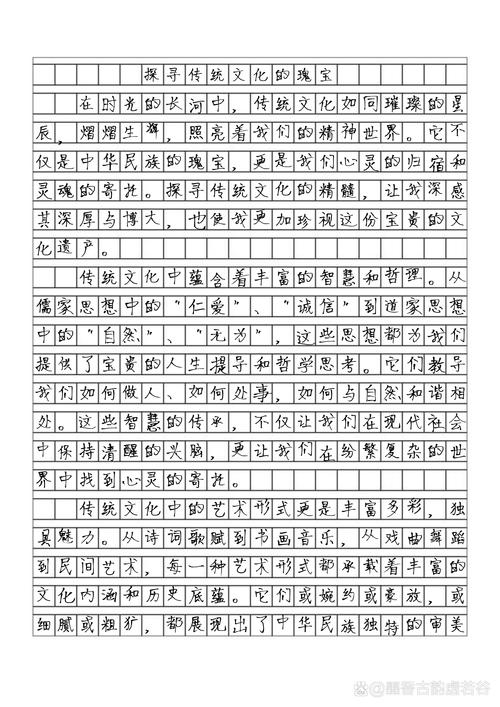 探寻传统文化的瑰宝
在时光的长河中，传统文化如同璀璨的星
辰，熠熠生辉，照亮着我们的精神世界。它不
仅是中华民族的瑰宝，更是我们心灵的归宿和
灵魂的寄托。探寻传统文化的精髓，让我深感
其深厚与博大，也使我更加珍视这份宝贵的文
化遗产。
传统文化中蕴含着丰富的智慧和哲理。从
儒家思想中的“仁爱”、“诚信”到道家思想
中的“自然”、“无为”，这些思想都为我们
提供了宝贵的人生提导和哲学思考。它们教导
我们如何做人、如何处事，如何与自然和谐相
处。这些智慧的传承，不仅让我们在现代社会
中保持清醒的头脑，更让我们在纷繁复杂的世
界中找到心灵的寄托。
传统文化中的艺术形式更是丰富多彩，独
具魅力。从诗词歌赋到书画音乐，从戏曲舞蹈
到民间艺术，每一种艺术形式都承载着丰富的
文化内涵和历史底蕴。它们或婉约或豪放，或
细腻或粗犷，都展现出了中华民族独特的审美